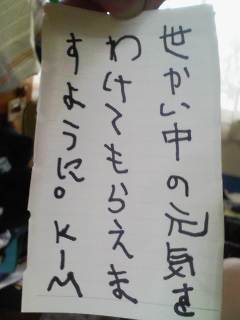 せかい中の元気を
わけてもらえま
すように。KIM